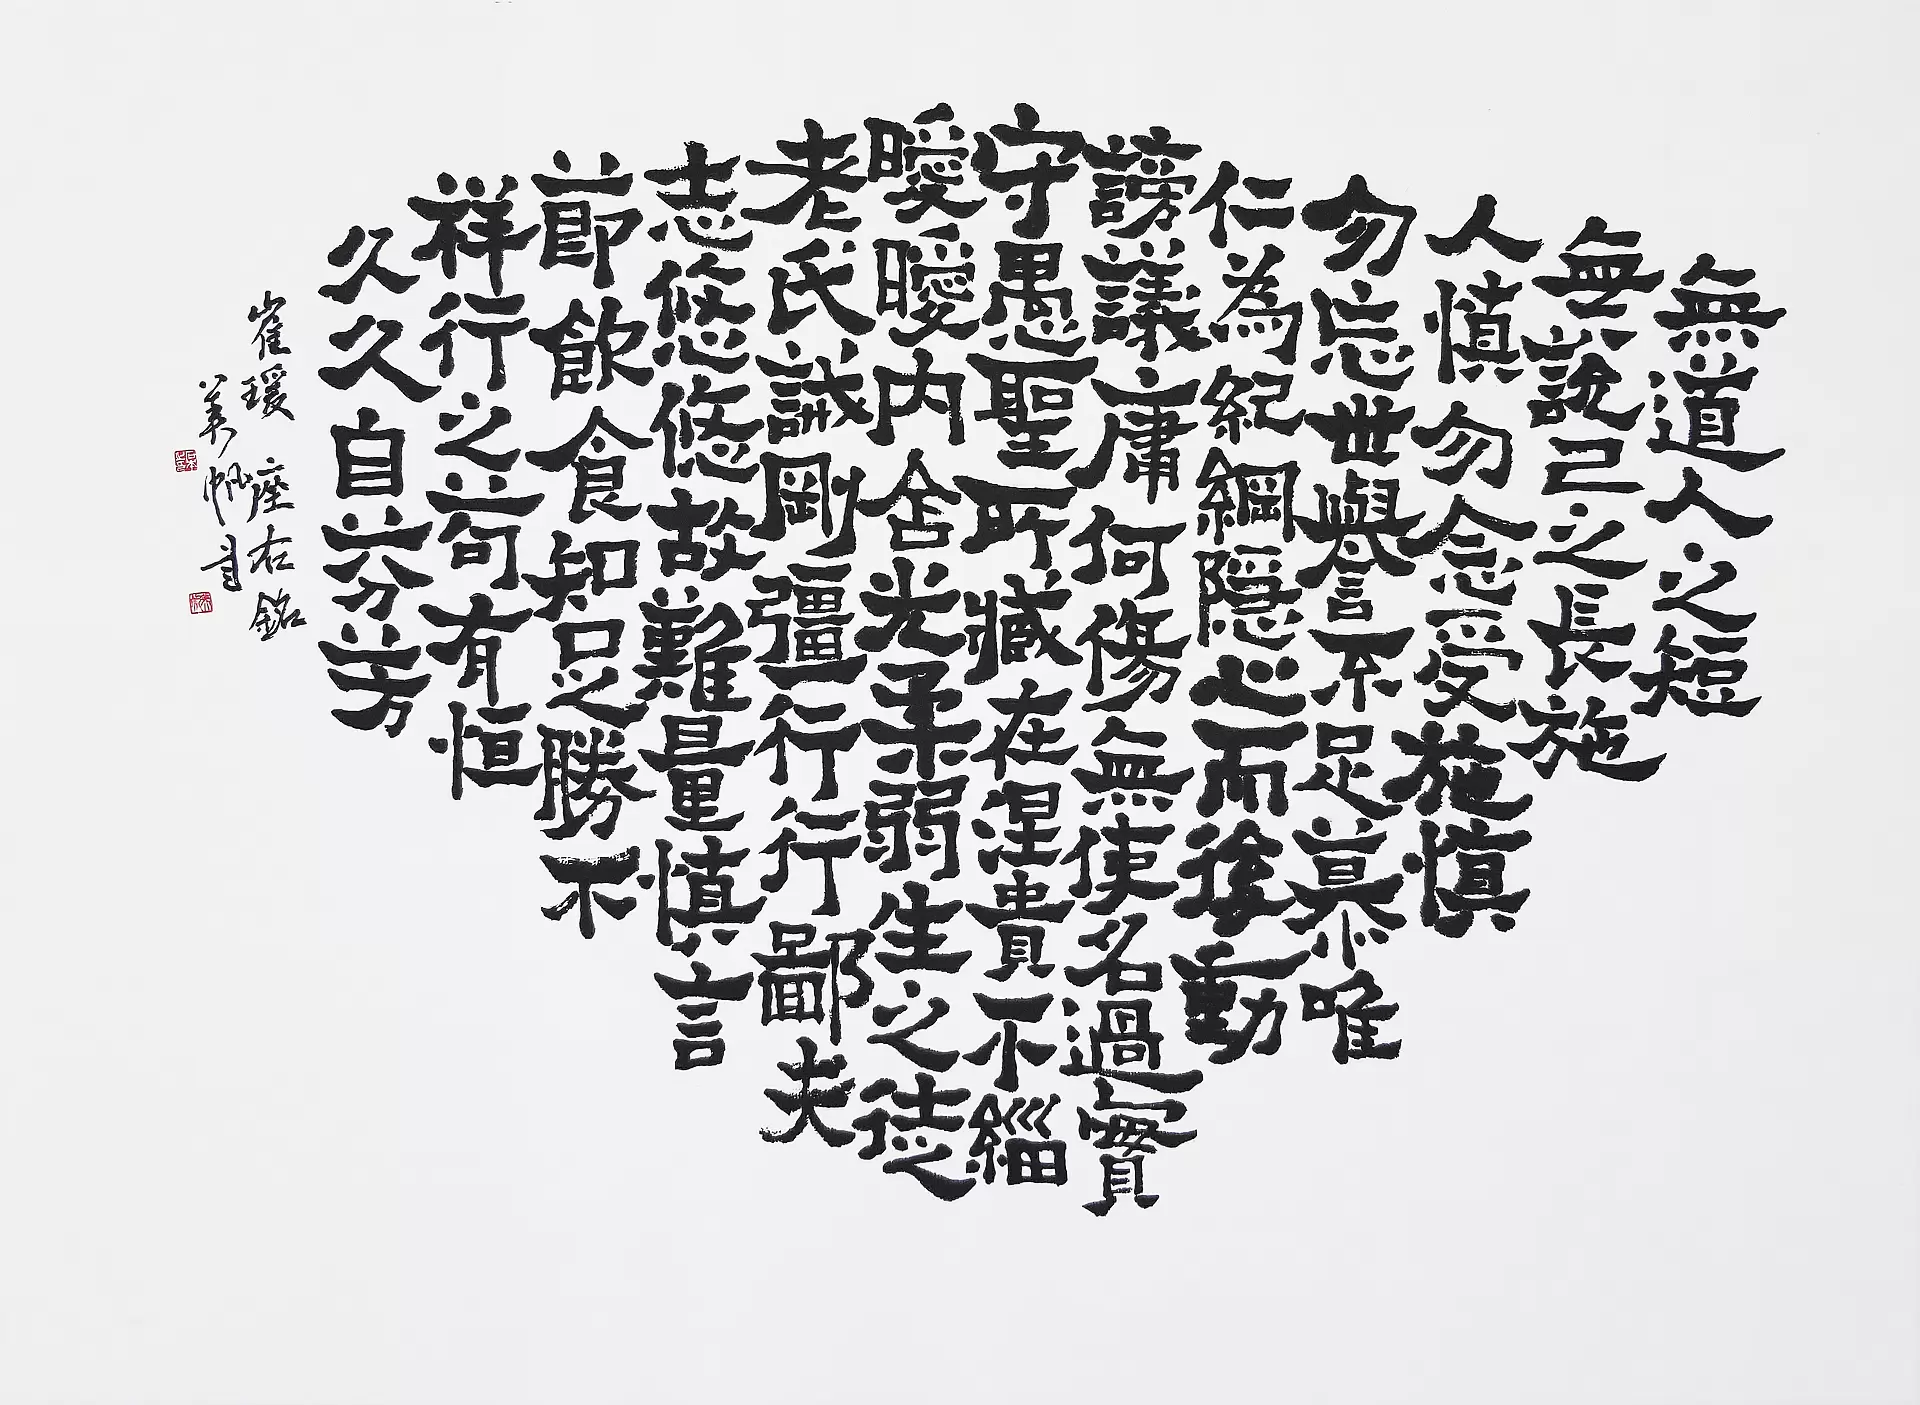 無道人之短
無說己之長施
人慎勿念受施慎
勿忘世譽不足慕唯
仁為紀綱隱心而後動
謗議庸何傷無使名過實
守愚聖所臧在涅貴不緇
曖曖內含光柔弱生之徒
老氏誡剛彊行行鄙夫
志悠悠故難量慎言
節飲食知足勝不
祥行之苟有恒
久久自芬芳
崔瑗座右銘
美帆書